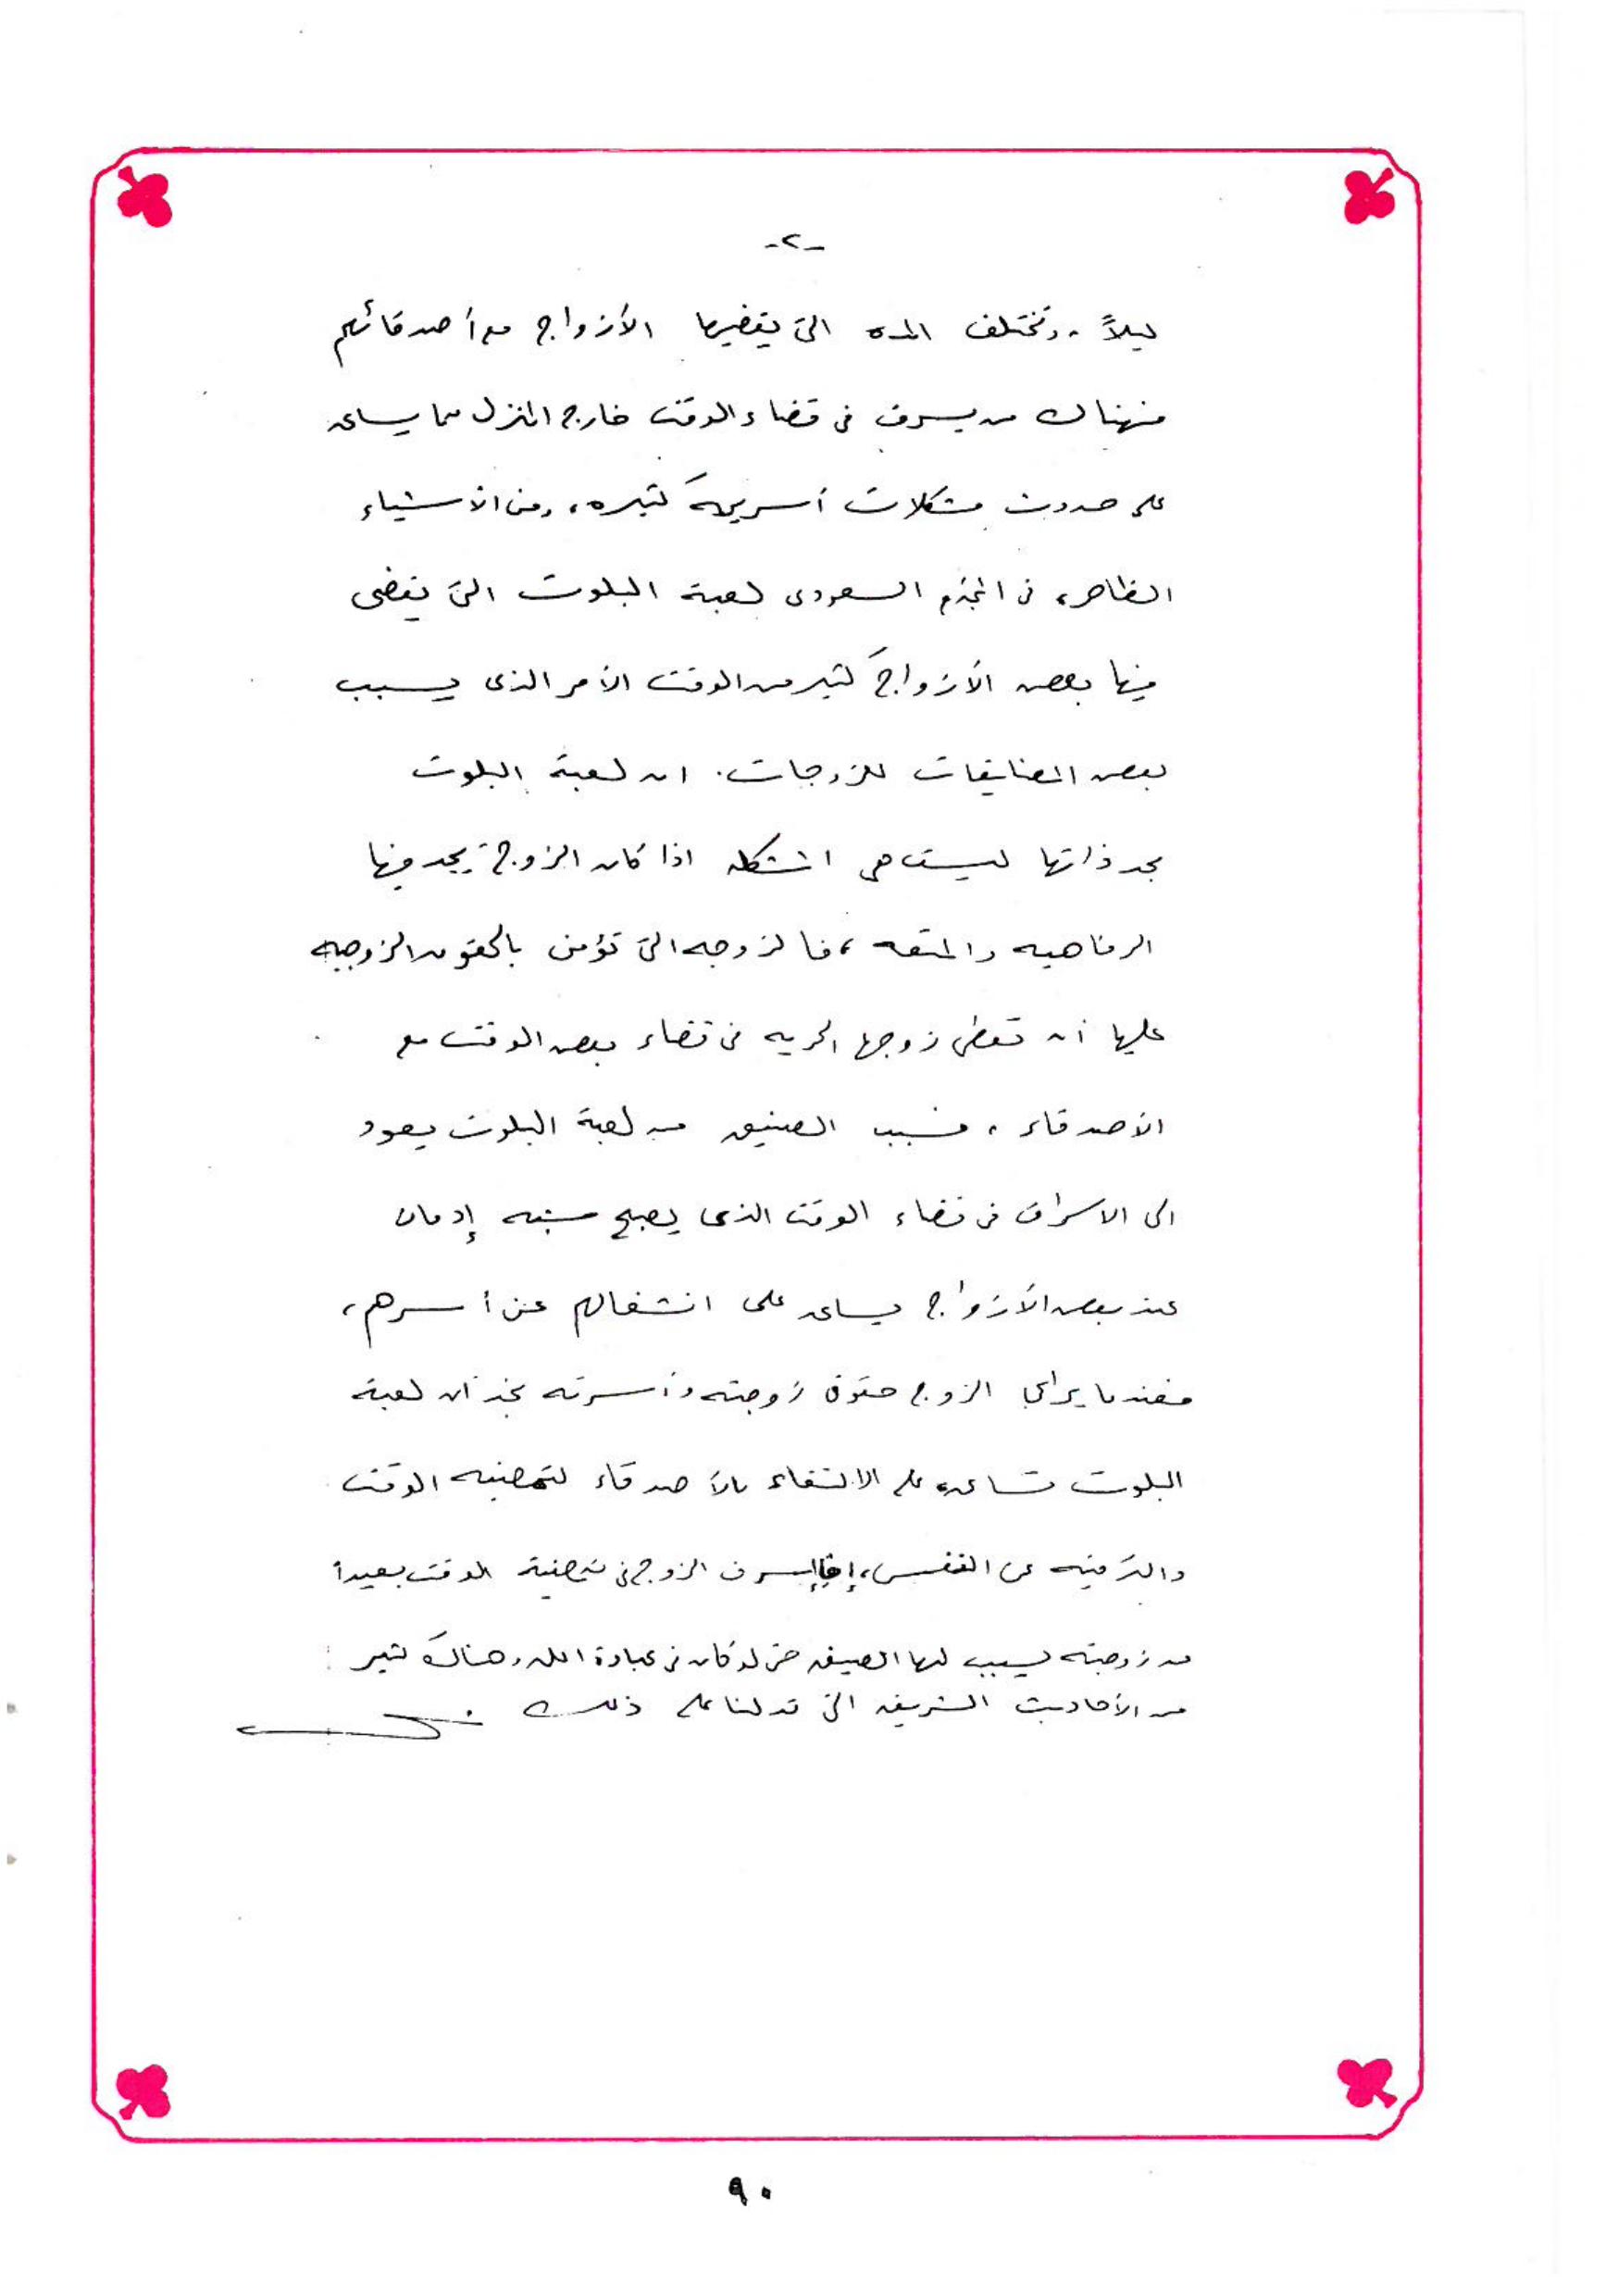 -٢-
ليلاً . وتختلف المده التي يقضيها الأزواج مع أصدقائهم
فهناك من يسرف في قضاء الوقت خارج المنزل مما يساعد
على حدوث مشكلات أسرية كثيره ، ومن الأشياء
الظاهره في المجتمع السعودي لعبة البلوت التي يقضي
فيها بعض الأزواج كثير من الوقت الأمر الذي يسبب
بعض المضايقات للزوجات . ان لعبة البلوت
بحد ذاتها ليست هي المشكله اذا كان الزوج يجد فيها
الرفاهيه والمتعه ، فالزوجه التي تؤمن بالحقوق الزوجيه
عليها أن تعطي زوجها الحريه في قضاء بعض الوقت مع
الأصدقاء ، فسبب الضيق من لعبة البلوت يعود
الى الاسراف في قضاء الوقت الذي يصبح شبه إدمان
عند بعض الأزواج يساعد على انشغالهم عن أسرهم ،
فعندما يراعي الزوج حقوق زوجته وأسرته نجد أن لعبة
البلوت تساعده على الالتقاء بالأصدقاء لتمضيه الوقت
والترفيه عن النفس ، إسرف الزوج في تمضية الوقت بعيداً
من زوجته يسبب لها الضيق حتى لو كان في عبادة الله وهناك كثير
من الأحاديث الشريفه التي تدلنا على ذلك .
٩٠